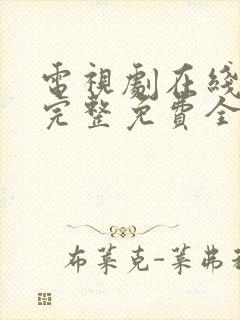 電視劇在綫
完整免費全
布萊克-萊弗